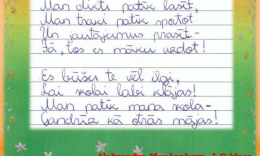 Man dikti patīk lasīt,
Man traki patīk sportot
Un jautājumus prasīt –
Jā, tos es māku uzdot!
Es būšu te vēl ilgi,
Lai skolai labi klājas!
Man patīk mana skola –
Gandrīz kā otrās mājas!